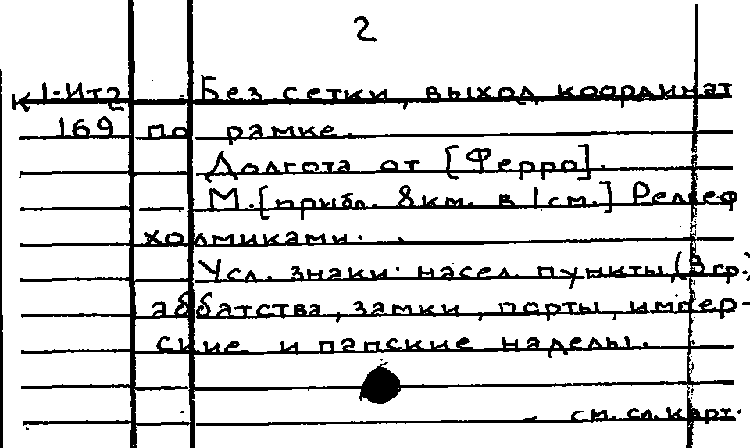 2
К 1-Ит2 Без сетки, выход координат
169 по рамке.
Долгота от [Ферро].
М.[прибл. 8км. в 1см.] Рельеф
холмиками.
Усл. знаки: насел. пункты, (3 гр.)
аббатства, замки, порты, импер-
ские и папские наделы.
см. сл. карт.